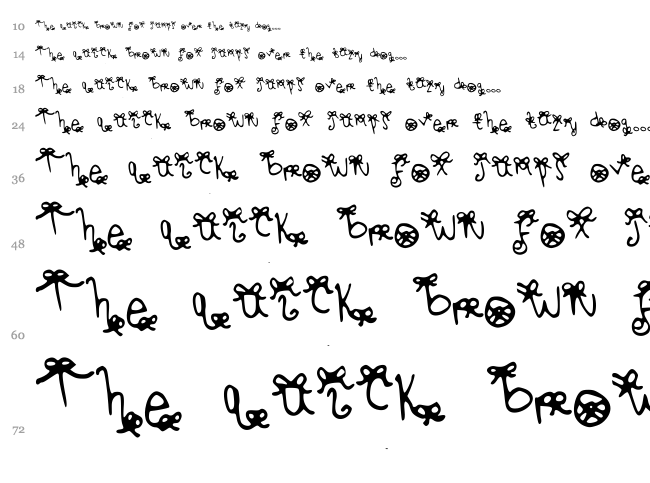 10 The quick brown fox jumps over the lazy dog....
14 The quick brown fox jumps over the lazy dog....
18 The quick brown fox jumps over the lazy dog....
24 The quick brown fox jumps over the lazy dog....
36 The quick brown fox jumps ove
48 The quick brown fox j
60 The quick brown f
72 The quick brow